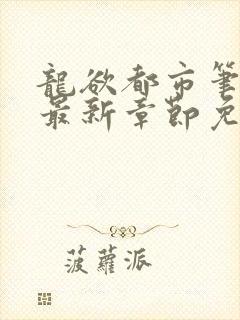 龍欲都市筆
最新章節免
菠蘿派